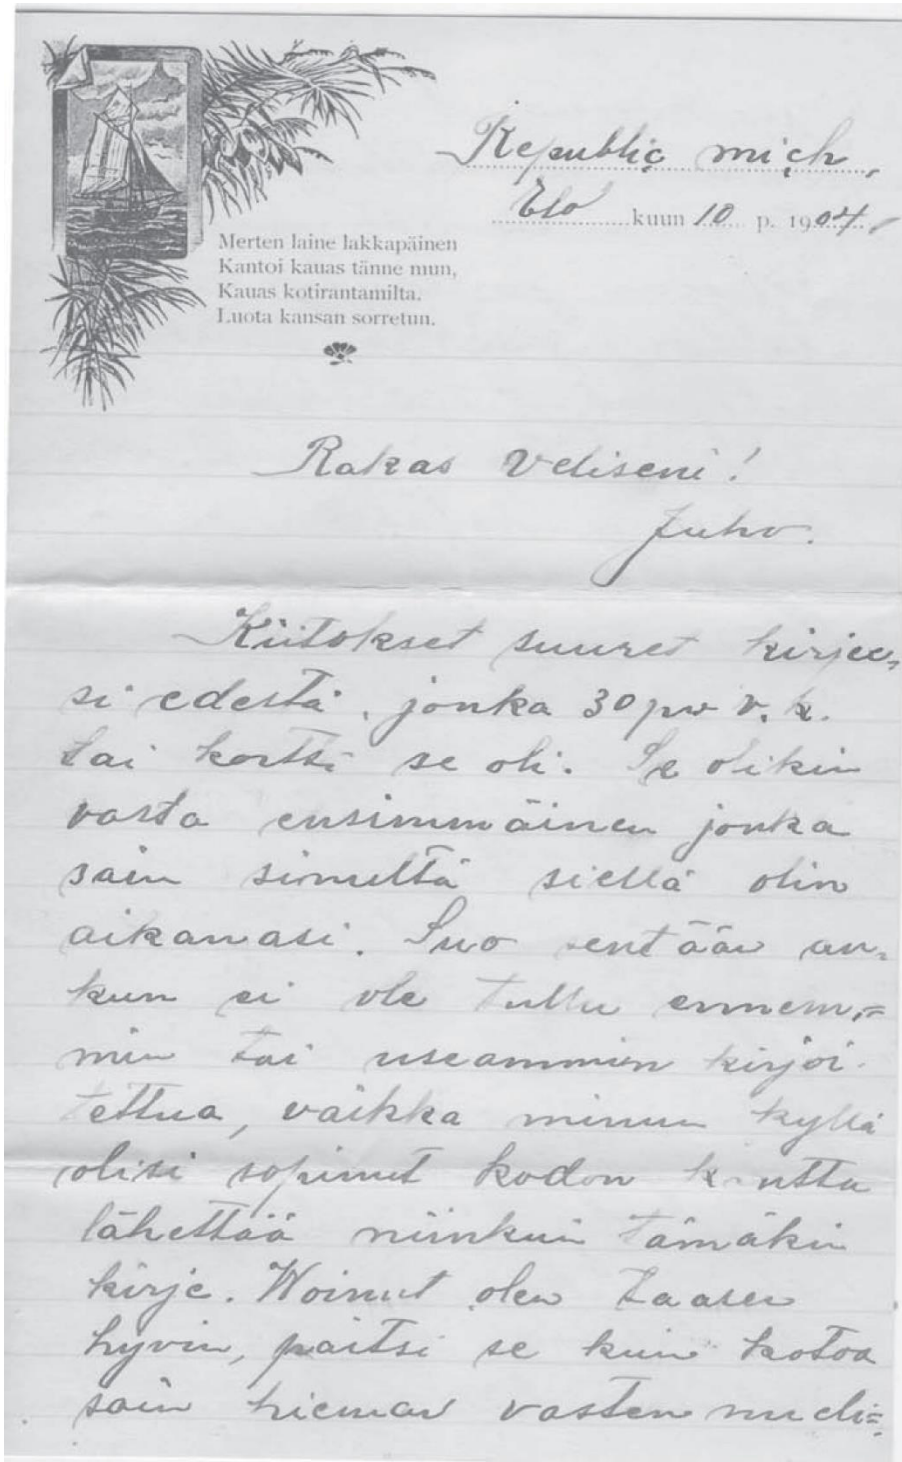 Republic, mich,
Elo kuun 10 p. 1904,
Merten laine lakkapäinen
Kantoi kauas tänne mun,
Kauas kotirantamilta.
Luota kansan sorretun.
Rakas Veliseni!
Juho.
Kiitokset suuret kirjee,
si edestä, jonka 30 pw v. k.
sai kortti se oli. Se olikin
vasta ensimmäinen jonka
sain sinulta siellä olin
aikanasi. Suo sentään an-
kun ei ole tullu ennem,=
min tai useammin kirjoi-
tettua, vaikka minun kyllä
olisi sopinut kodon kautta
lähettää niinkuin tämäkin
kirje. Woinut olen taasen
hyvin, paitsi se kuin kotoa
sain hieman vasten mieli=